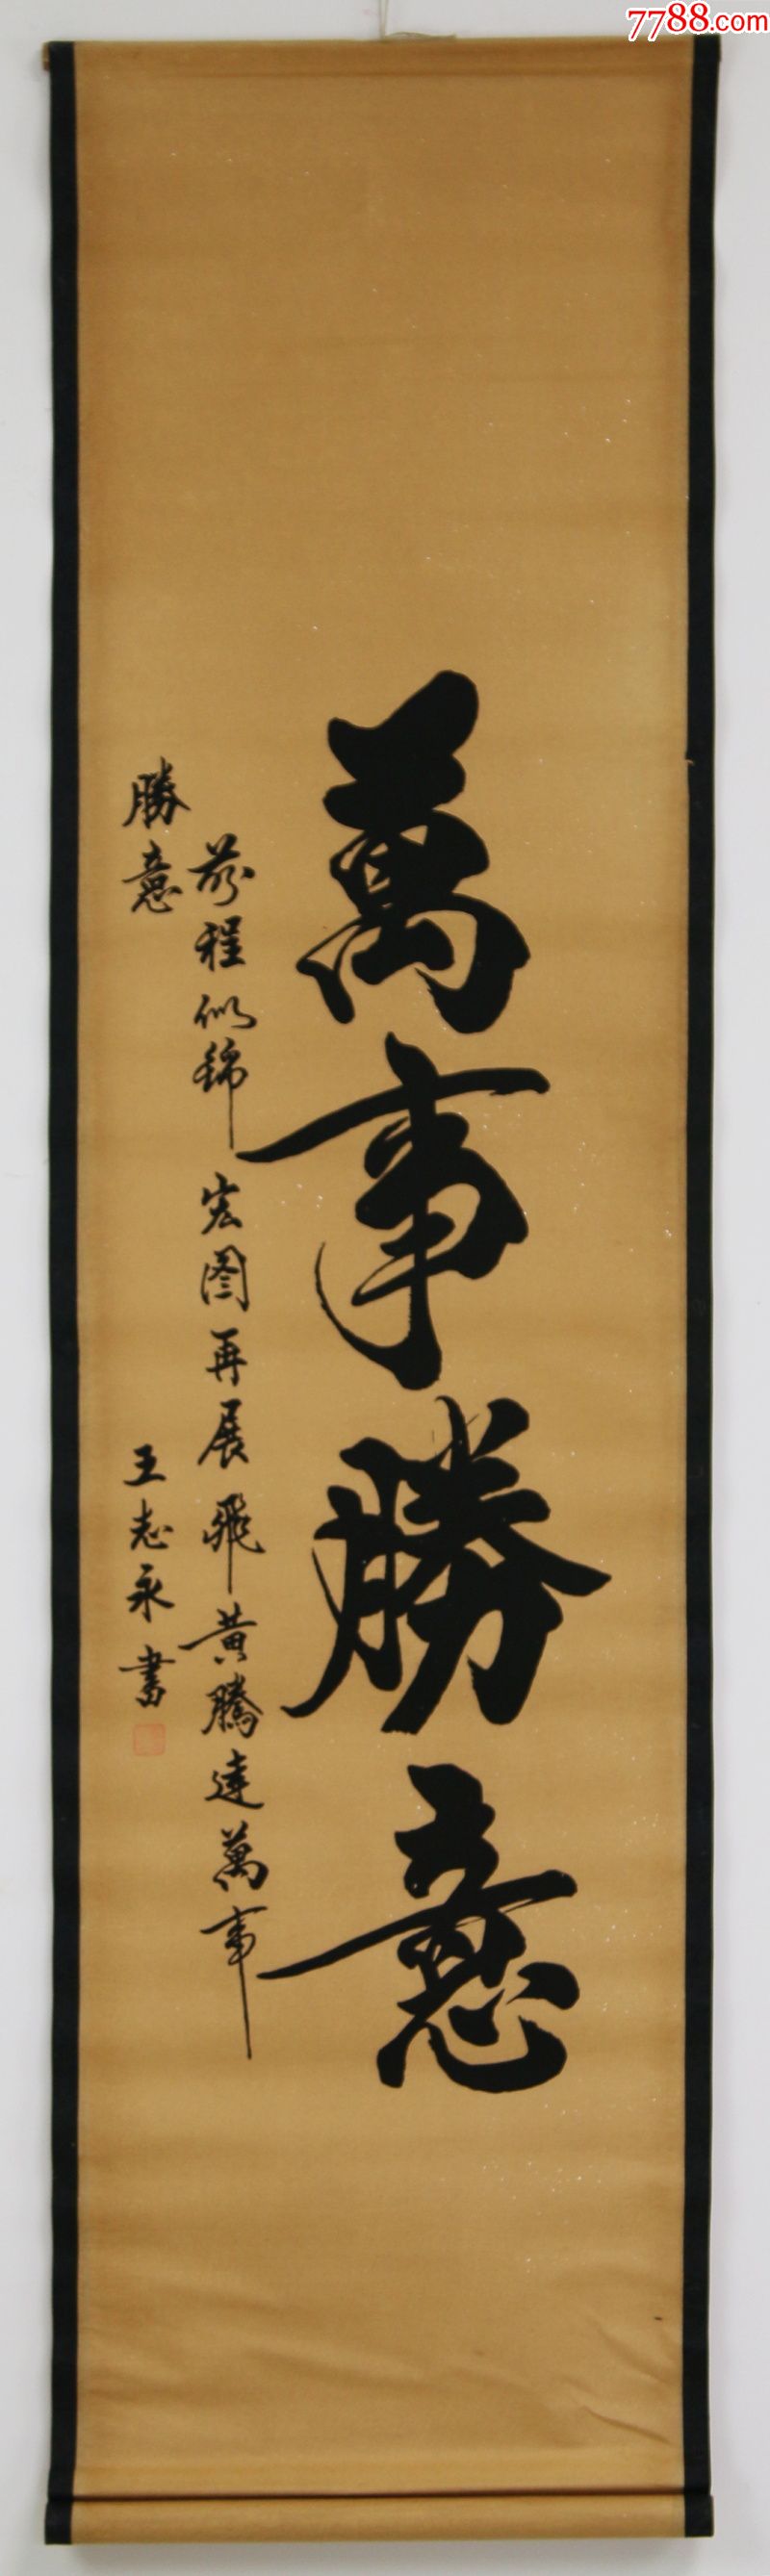 7788.com
萬事勝意
前程似錦宏图再展飛黃騰達萬事
勝意
王志永書